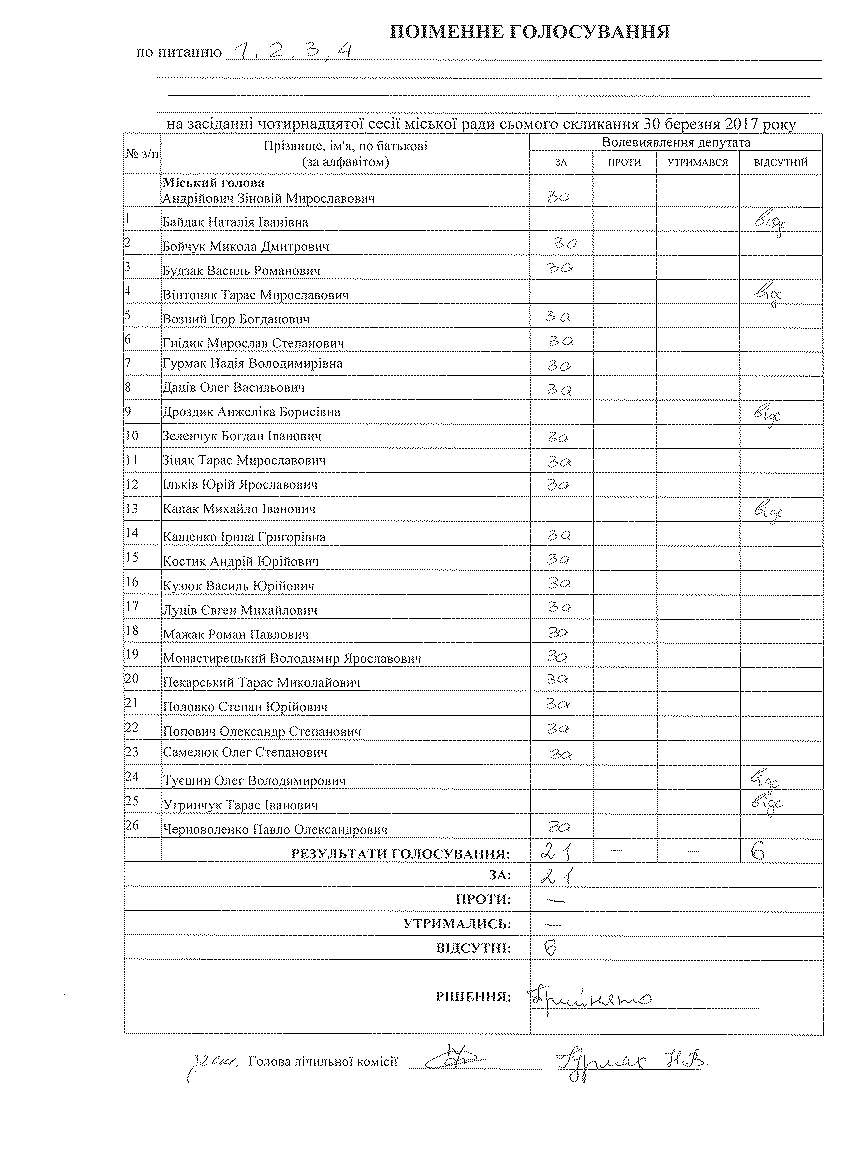 ПОІМЕННЕ ГОЛОСУВАННЯ
по питанню 1, 2, 3, 4
на засіданні чотирнадцятої сесії міської ради сьомого скликання 30 березня 2017 року
№ з/п Прізвище, ім'я, по батькові (за алфавітом) Волевиявлення депутата
ЗА ПРОТИ УТРИМАВСЯ ВІДСУТНІЙ
Міський голова
Андрійович Зіновій Мирославович за
1 Байдак Наталія Іванівна відс
2 Бойчук Микола Дмитрович за
3 Будзак Василь Романович за
4 Вінтоняк Тарас Мирославович відс
5 Возний Ігор Богданович за
6 Гнідик Мирослав Степанович за
7 Гурмак Надія Володимирівна за
8 Даців Олег Васильович за
9 Дроздик Анжеліка Борисівна відс
10 Зеленчук Богдан Іванович за
11 Зіняк Тарас Мирославович за
12 Ільків Юрій Ярославович за
13 Капак Михайло Іванович відс
14 Кащенко Ірина Григорівна за
15 Костик Андрій Юрійович за
16 Кузюк Василь Юрійович за
17 Луців Євген Михайлович за
18 Мажак Роман Павлович за
19 Монастирецький Володимир Ярославович за
20 Пекарський Тарас Миколайович за
21 Половко Степан Юрійович за
22 Попович Олександр Степанович за
23 Самелюк Олег Степанович за
24 Туєшин Олег Володимирович відс
25 Угринчук Тарас Іванович відс
26 Черноволенко Павло Олександрович за
РЕЗУЛЬТАТИ ГОЛОСУВАННЯ: 21 – – 6
ЗА: 21
ПРОТИ: —
УТРИМАЛИСЬ: —
ВІДСУТНІ: 6
РІШЕННЯ: Прийнято
Голова лічильної комісії Гурмак Н.В.